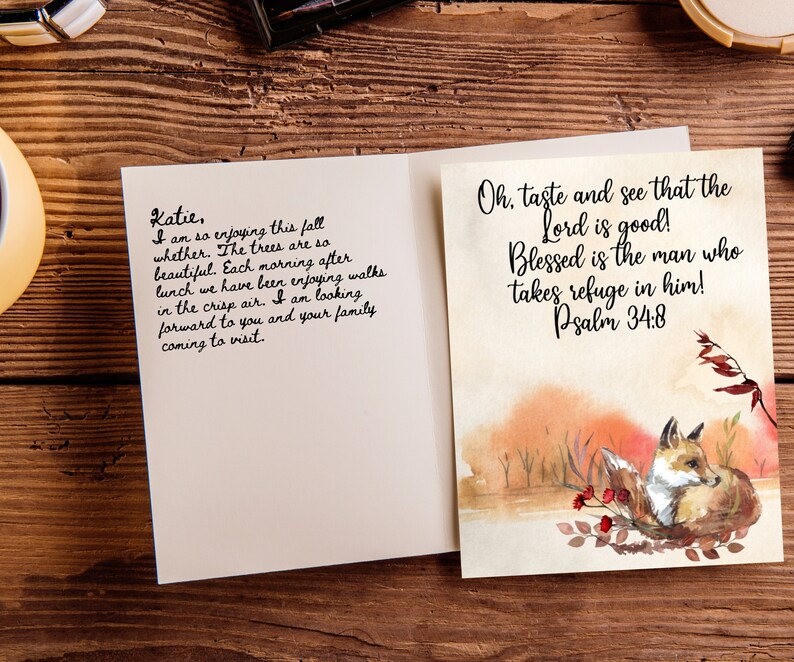 Katie,
I am so enjoying this fall
whether. The trees are so
beautiful. Each morning after
lunch we have been enjoying walks
in the crisp air. I am looking
forward to you and your family
coming to visit.
Oh, taste and see that the
Lord is good!
Blessed is the man who
takes refuge in him!
Psalm 34:8